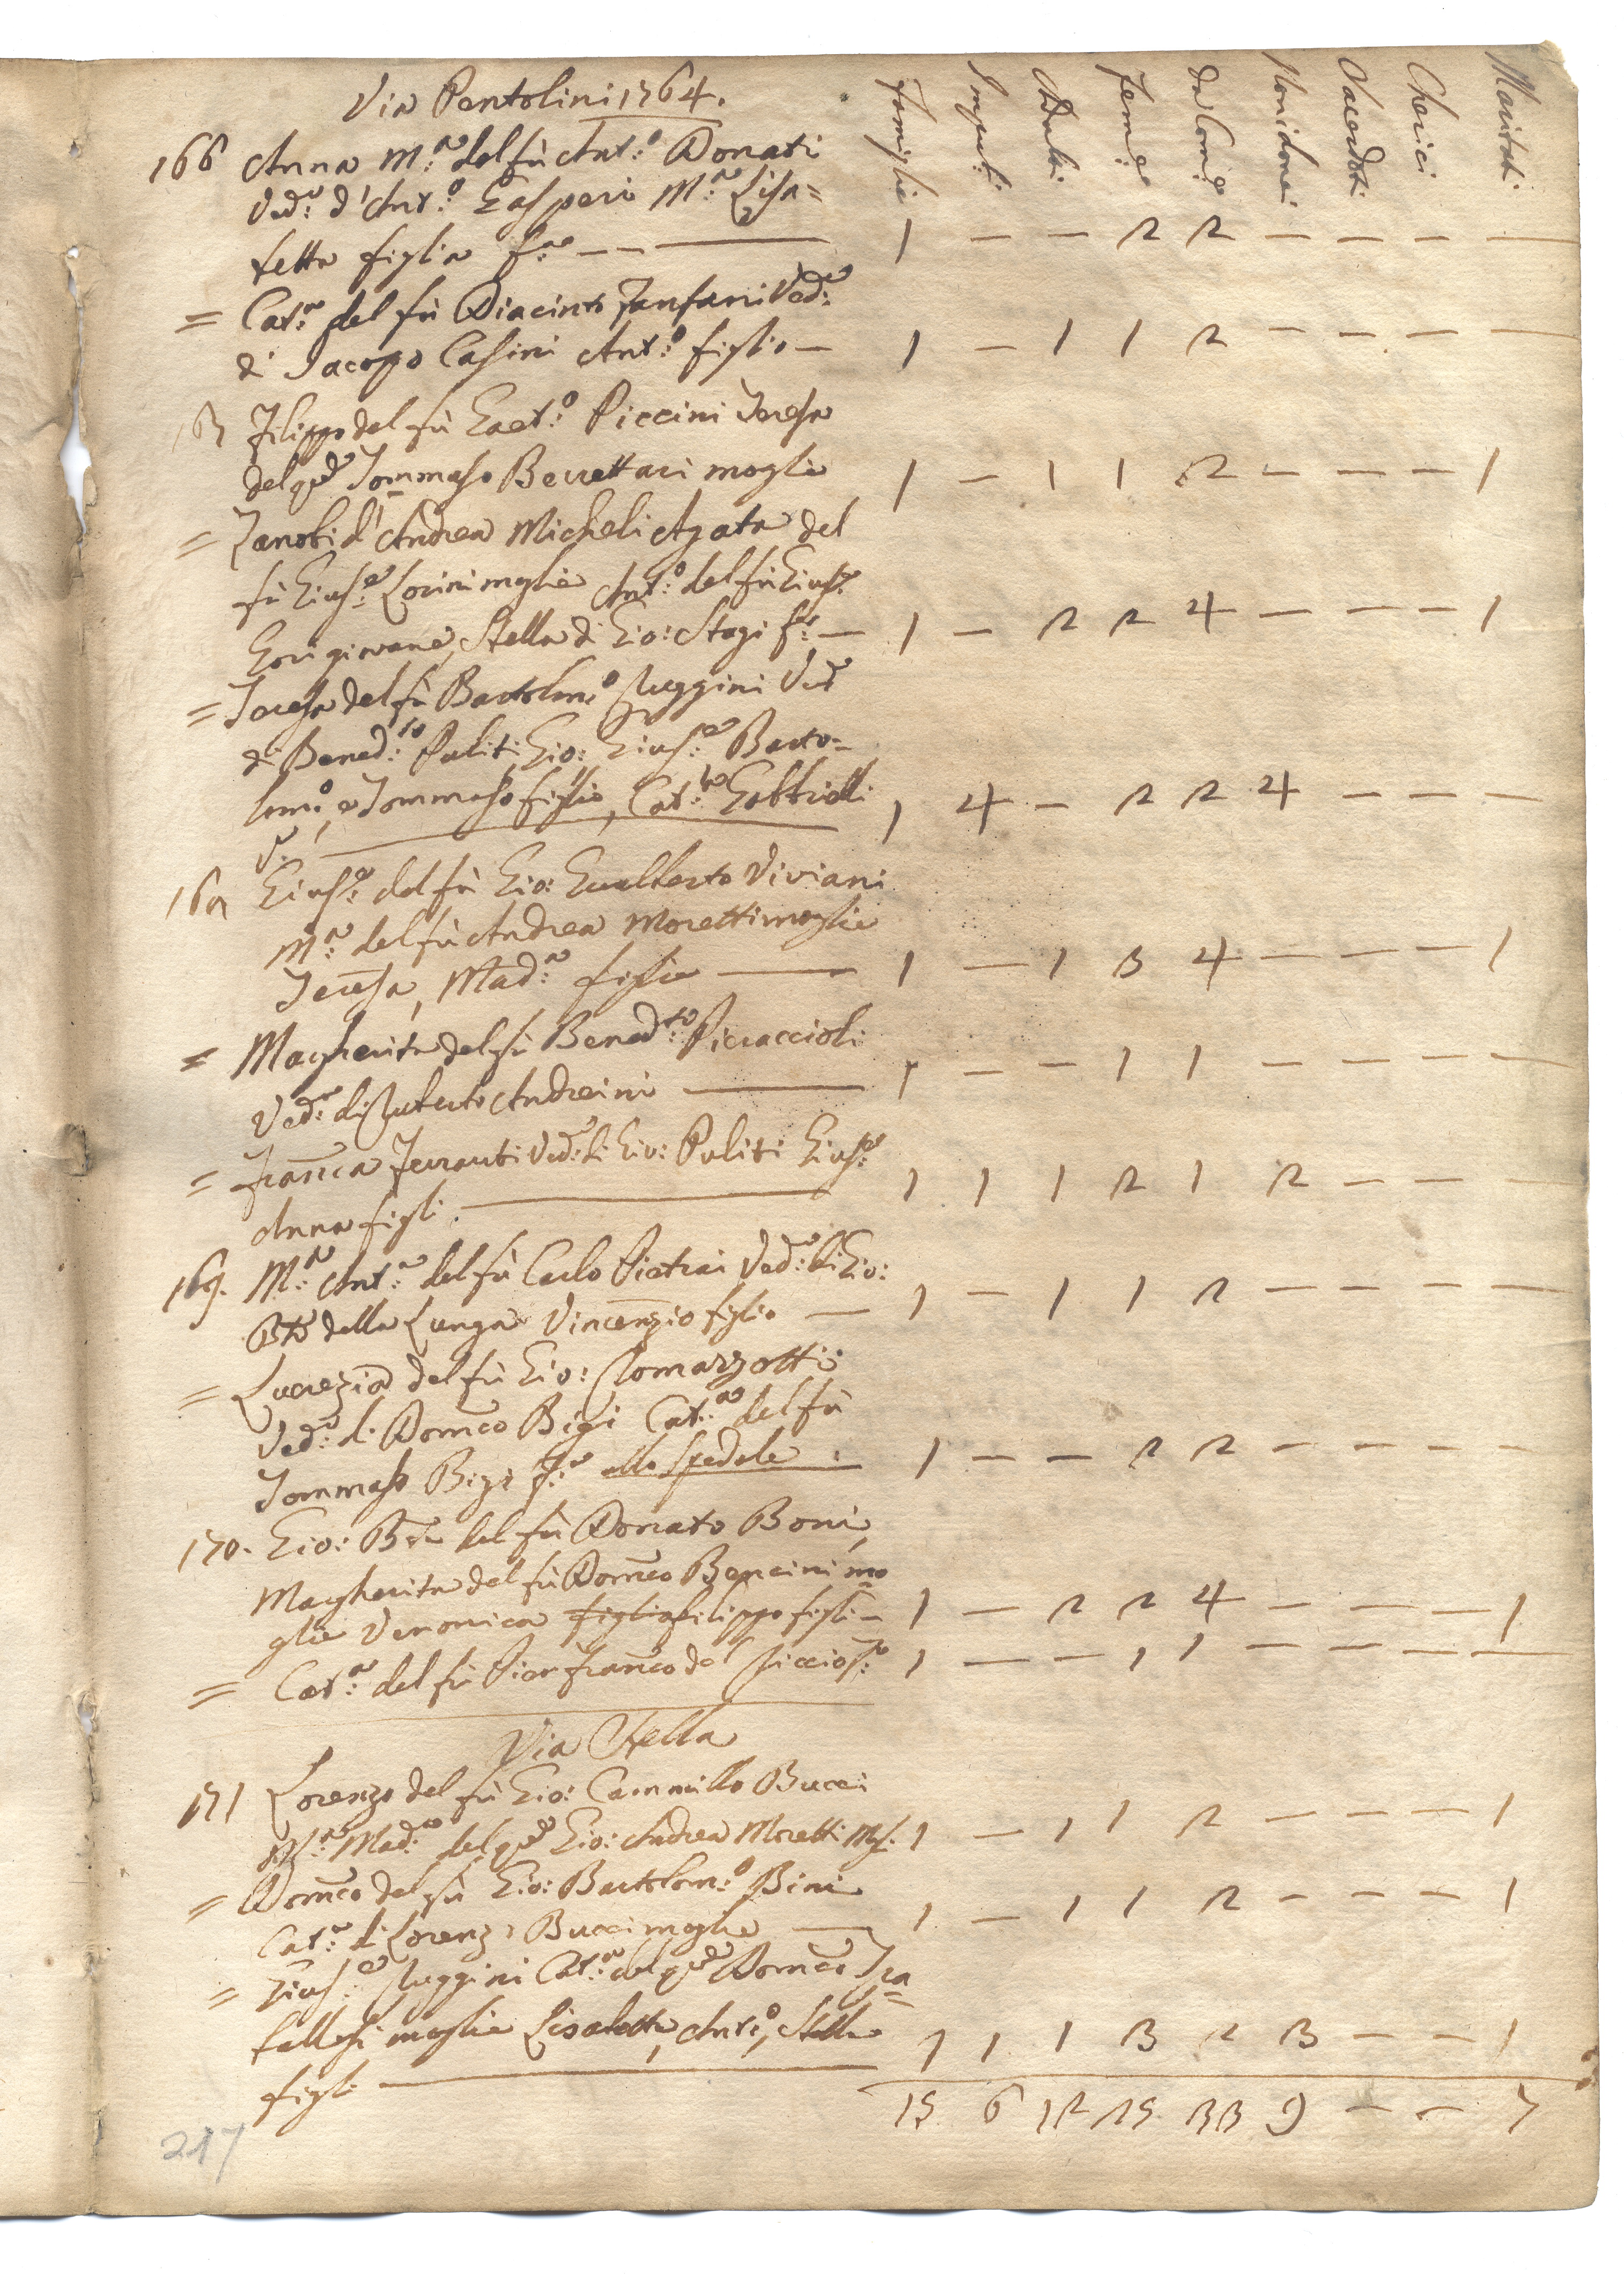 Via Pentolini 1764.
Famiglie Impub:i Adulti Fem:e Da Com:e Non idonei Sacerdoti Cherici Maritati
166 Anna M:a del fù Ant:o Donati
Ved:a d'Ant:o Gasperi M:a Lisa=
betta figlia — — — 1 — — 2 2 — — — —
= Cat:a del fù Diacinto Fanfani Ved:a
di Jacopo Casini Ant:o figlio — 1 — 1 1 2 — — — —
167 Filippo del fù Gaet:o Piccini Teresa
del qd Tommaso Berrettari moglie 1 — 1 1 2 — — — 1
= Zanobi d'Andrea Micheli Agata del
fù Gius:e Lorini moglie Ant:o del fù Gius:e
Gori giovane, Stella di Gio: Stagi — 1 — 2 2 4 — — — 1
= Teresa del fù Bartolom:o Ruggini Ved
di Bened:to Puliti Gio: Gius:e Barto-
lom:o, e Tommaso figli, Cat:a Gabbrielli 1 4 — 2 2 4 — — —
168 Gius:e del fù Gio: Gualberto Viviani
M:a del fù Andrea Moretti moglie
Teresa, Mad:a figlie — 1 — 1 3 4 — — — 1
= Margherita del fù Bened:to Pieraccioli
Ved:a di Ruberto Andreini — 1 — — 1 1 — — — —
= Franca Ferranti Ved:a di Gio: Puliti Gius:e
Anna figli. — 1 1 1 2 1 2 — — —
169. M:a Ant:a del fù Carlo Pietrai Ved:a di Gio:
Bta della Lunga Vincenzio figlio — 1 — 1 1 2 — — — —
= Lucrezia del fù Gio: Romazzotti
Ved:a di Domco Bigi Cat:a del fù
Tommaso Bigi allo Spedale 1 — — 2 2 — — — —
170. Gio: Bta del fù Donato Boni,
Margherita del fù Domco Bencini mo
glie Veronica figlia Filippo figli — 1 — 2 2 4 — — — 1
= Cat:a del fù Pier Franco del 1 — — 1 1 — — — —
Via Stella
171 Lorenzo del fù Gio: Cammillo Bucci
M:a Mad:a del qd Gio: Andrea Moretti Mog. 1 — 1 1 2 — — — 1
= Domco del fù Gio: Bartolom:o Bini
Cat:a di Lorenzo Bucci moglie — 1 — 1 1 2 — — — 1
= Gius:e Ruggini Cat:a del qd Domco Fra
tellesi moglie Lisabetta, Ant:o, Stella
figli — 1 1 1 3 2 3 — — 1
15 6 12 25 33 9 — — 7
217